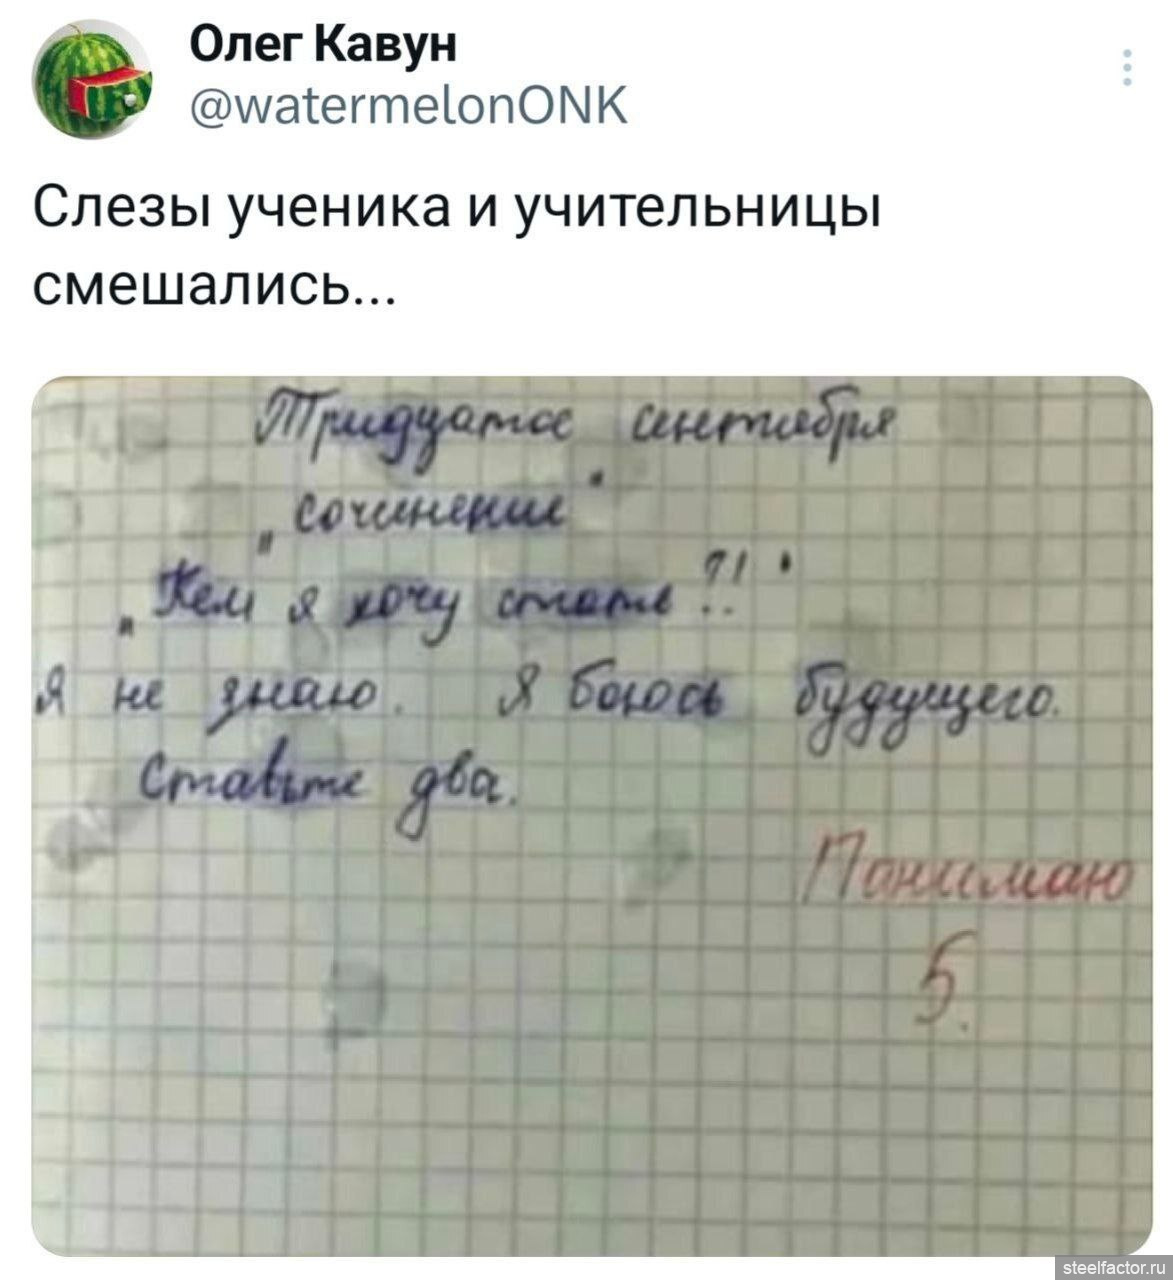 Олег Кавун
@watermelonONK
Слезы ученика и учительницы
смешались...
Тридцатое сентября
„Сочинение"
„Кем я хочу стать?!"
Я не знаю. Я боюсь будущего.
Ставьте два.
Понимаю
5.
steelfactor.ru